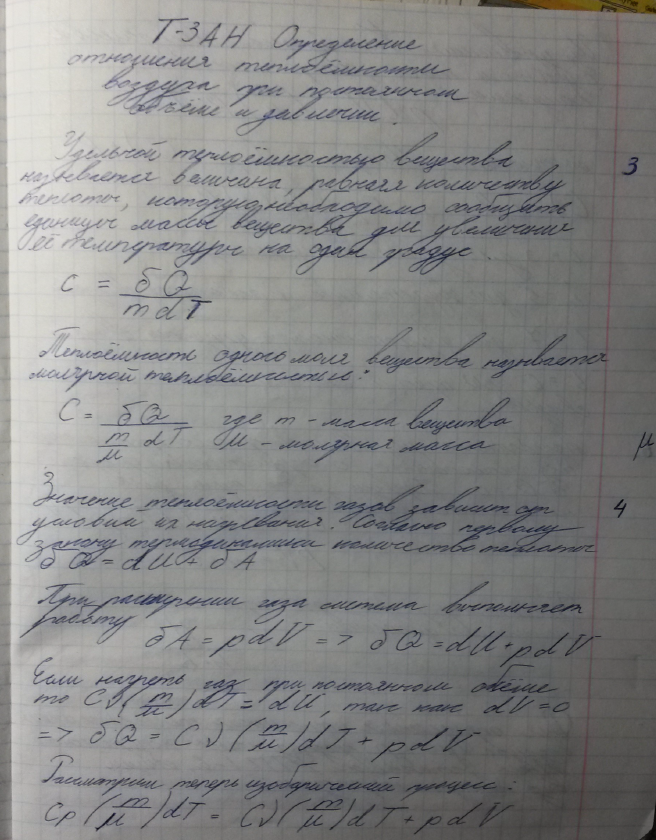 Т-ЗАН Определение
отношения теплоёмкости
воздуха при постоянном
объёме и давлении.
Удельной теплоёмкостью вещества
3
называется величана, равная количеству
теплоты, которую необходимо сообщить
единицы массы вещества для увеличения
её температуры на один градус
c = δQ / m dT
Теплоёмкость одного моля вещества называется
молярной теплоёмкостью:
C = δQ / (m/μ) dT где m - масса вещества
μ - молярная масса
μ
Значение теплоёмкости газов зависит от
4
условий их нагревания. Согласно первому
закону термодинамики количество теплоты
δQ = dU + δA
При расширении газа система выполняет
работу
δA = pdV => δQ = dU + pdV
Если нагреть газ при постоянном объёме
то Cv (m/μ) dT = dU, так как dV = 0
=> δQ = Cv (m/μ) dT + pdV
Рассмотрим теперь изобарический процесс:
Cp (m/μ) dT = Cv (m/μ) dT + pdV